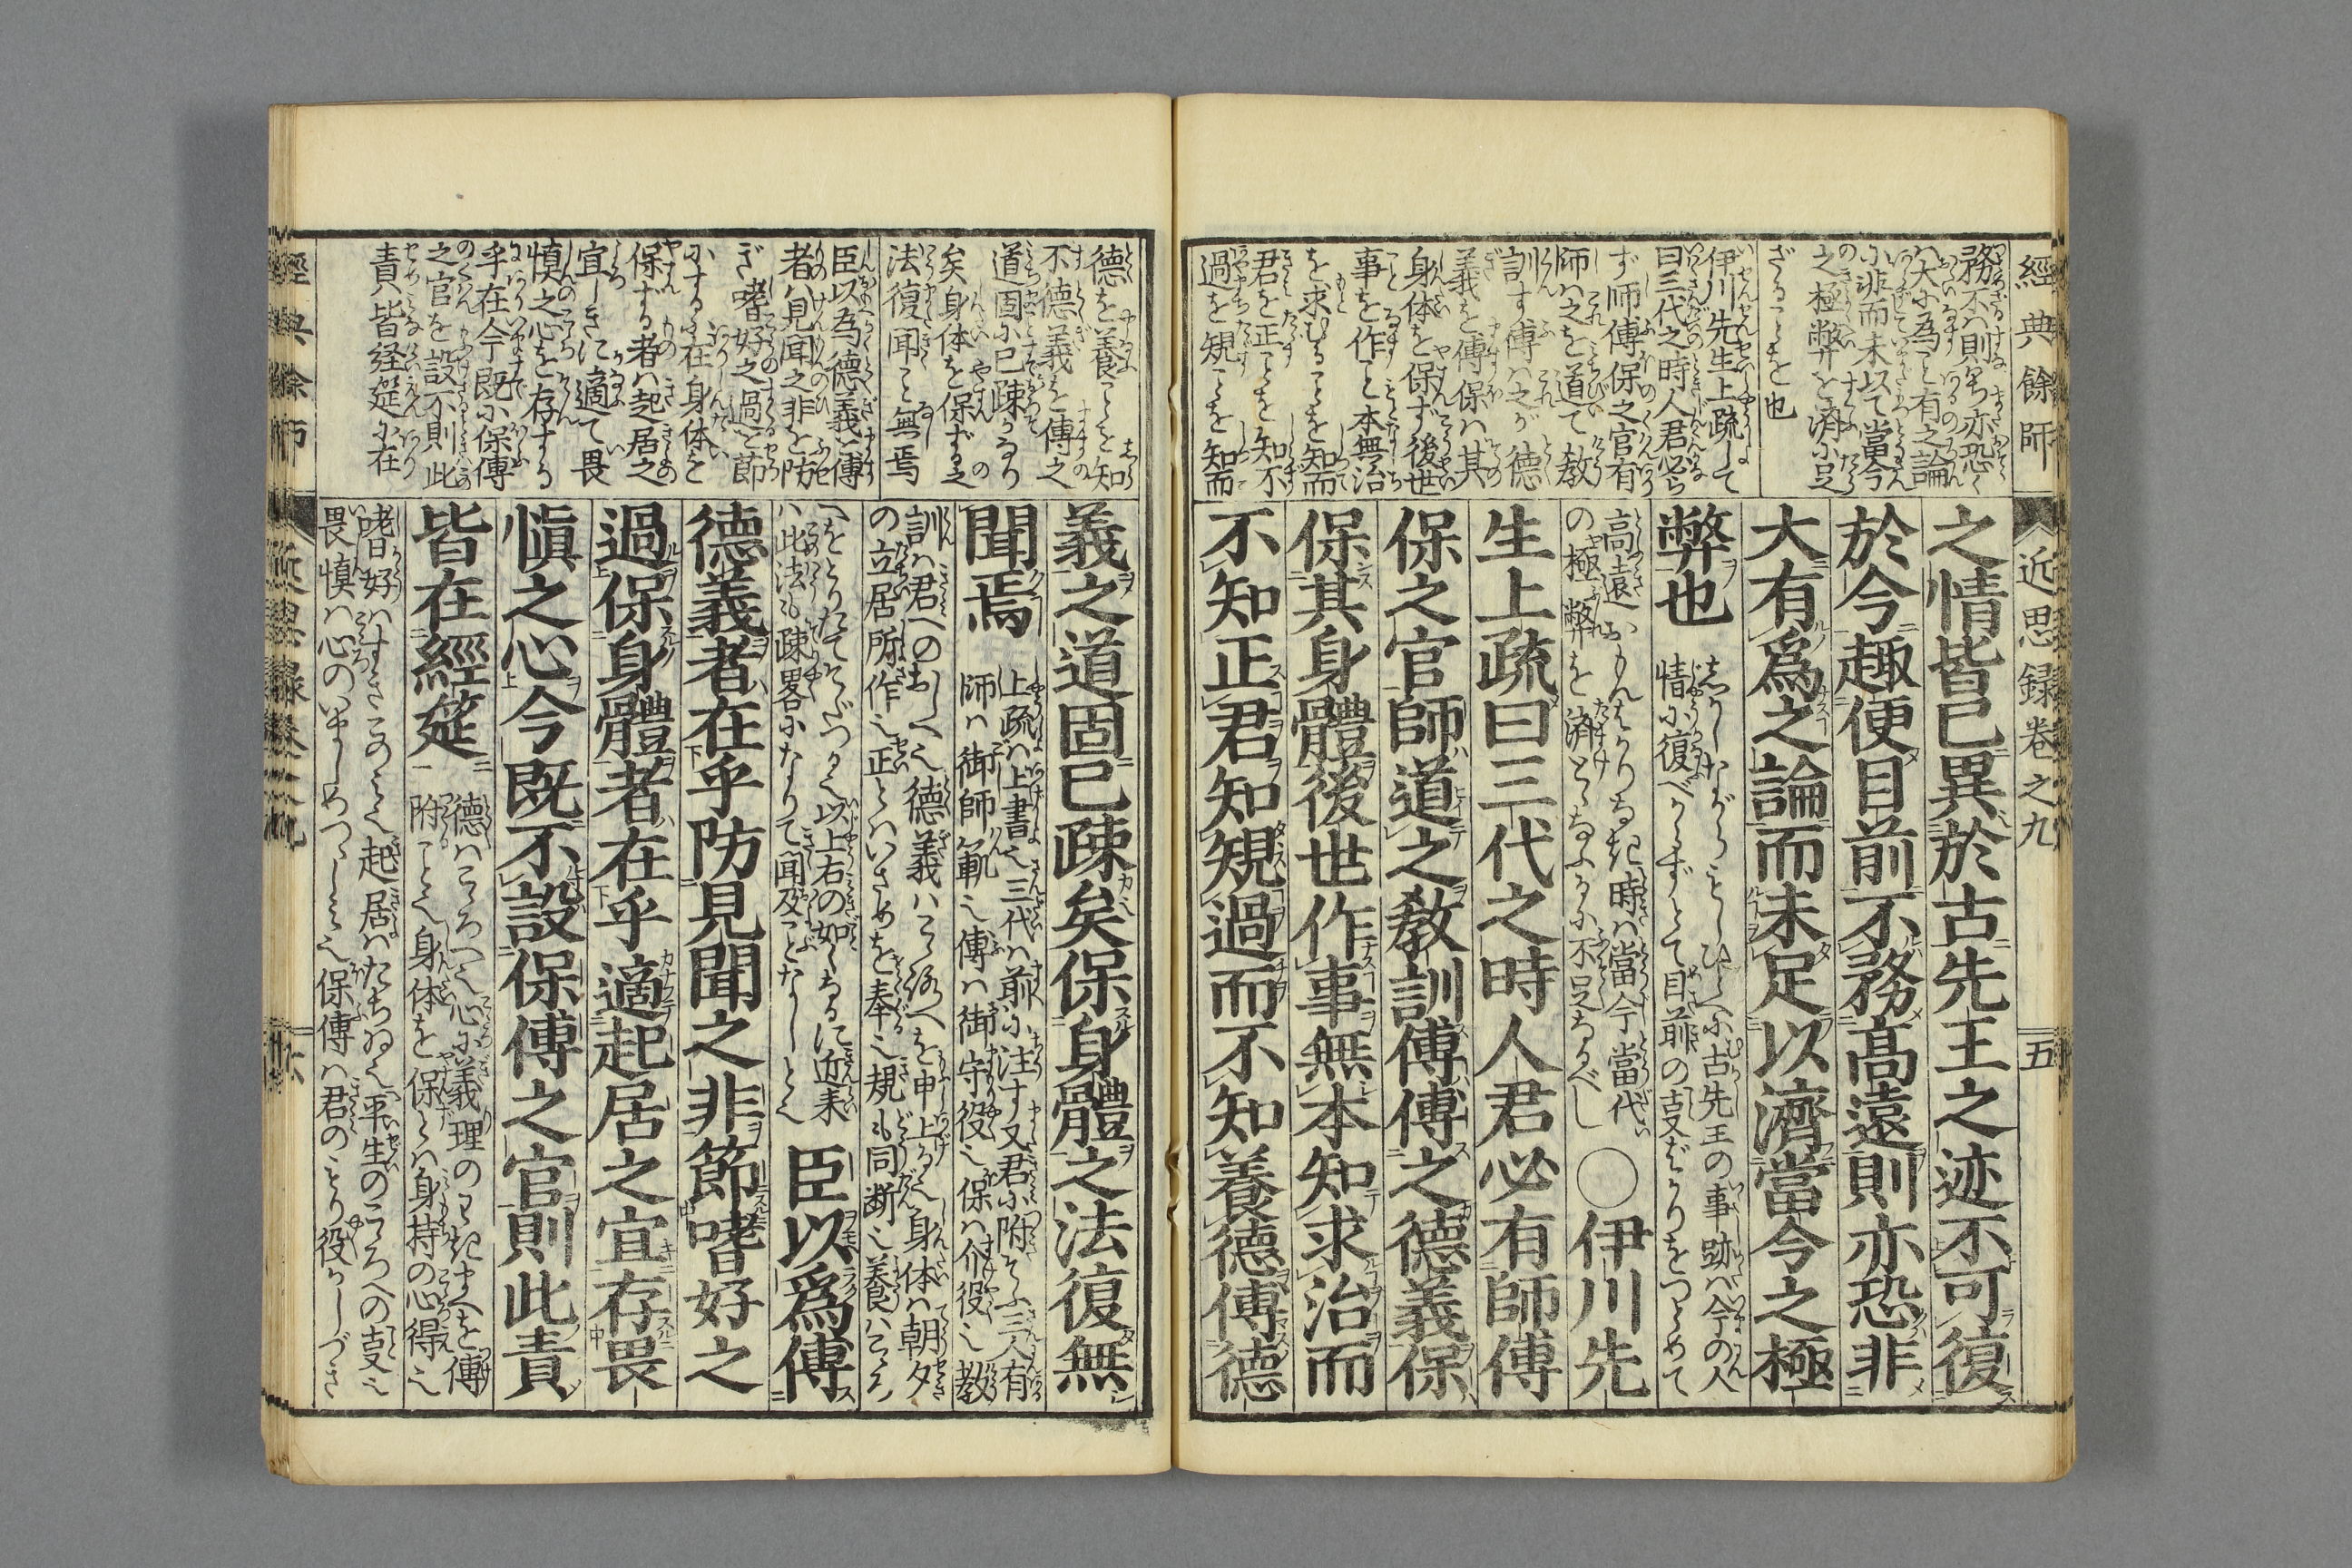 經典餘師
近思録卷之九
五
務不ハ則チ亦恐く
ハ大ニ為こと有之論
に非而未以て當今
之極弊を済に足
ざることを也
伊川先生上疏して
曰三代之時人君必ら
ず師傅保之官有
師ハ之を道て教
訓す傅ハ之が德
義を傅保ハ其
身体を保ず後世
事を作こと本無治
を求むることを知而
君を正ことを知不
過を規ことを知而
之情皆已異於古先王之迹不可復
於今趣便目前不務髙遠則亦恐非
大有爲之論而未足以濟當今之極
弊也
情に復べからずとて目前の叓ばかりをつとめて
の極弊を済けとゝなふるに不足なるべし
○伊川先
生上疏曰三代之時人君必有師傅
保之官師道之敎訓傅傅之德義保
保其身體後世作事無本知求治而
不知正君知規過而不知養德傅德
德を養ことを知
不德義を傅之
道固に已疎なり
矣身体を保ずる之
法復聞こと無焉
臣以為德義を傅
者ハ見聞之非を防
ぎ嗜好之過を節
にするに在身体を
保ずる者ハ起居之
宜しきに適て畏
慎之心を存する
乎在今既に保傅
之官を設不則此
責皆経筵に在
義之道固已疎矣保身體之法復無
聞焉
上疏ハ上書也三代ハ前に注す又君に附そふ三人有
師ハ御師範也傅ハ御守役也保ハ介役也教
訓ハ君へのおしへ也德義ハこゝろへを申上る也身体ハ朝夕
の立居所作也正とハいさめを奉る也規も同断也養ハこゝろ
へをとりたてそだつる也以上右の如くなるに近来
ハ此法も疎畧になりて聞及ことなしと也
臣以爲傅
德義者在乎防見聞之非節嗜好之
過保身體者在乎適起居之宜存畏
愼之心今既不設保傅之官則此責
皆在經筵
德ハこゝろへ也心に義理のわきまへを傅
附こと也身体を保とハ身持の心得也
嗜好ハすきこのみ也起居ハたちゐ也平生のこゝろへの叓也
畏慎ハ心のいましめつゝしみ也保傅ハ君のもり役かしづき
經典餘師
近思録卷之九
六